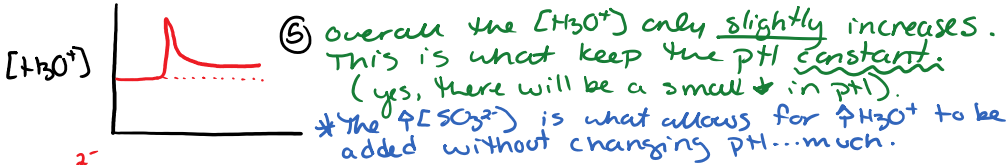 [H3O+]
⑤ overall the [H3O+] only slightly increases.
This is what keep the pH constant.
(yes, there will be a small ↓ in pH).
*The ↑[SO3²⁻] is what allows for ↑H3O+ to be
added without changing pH...much.
2-